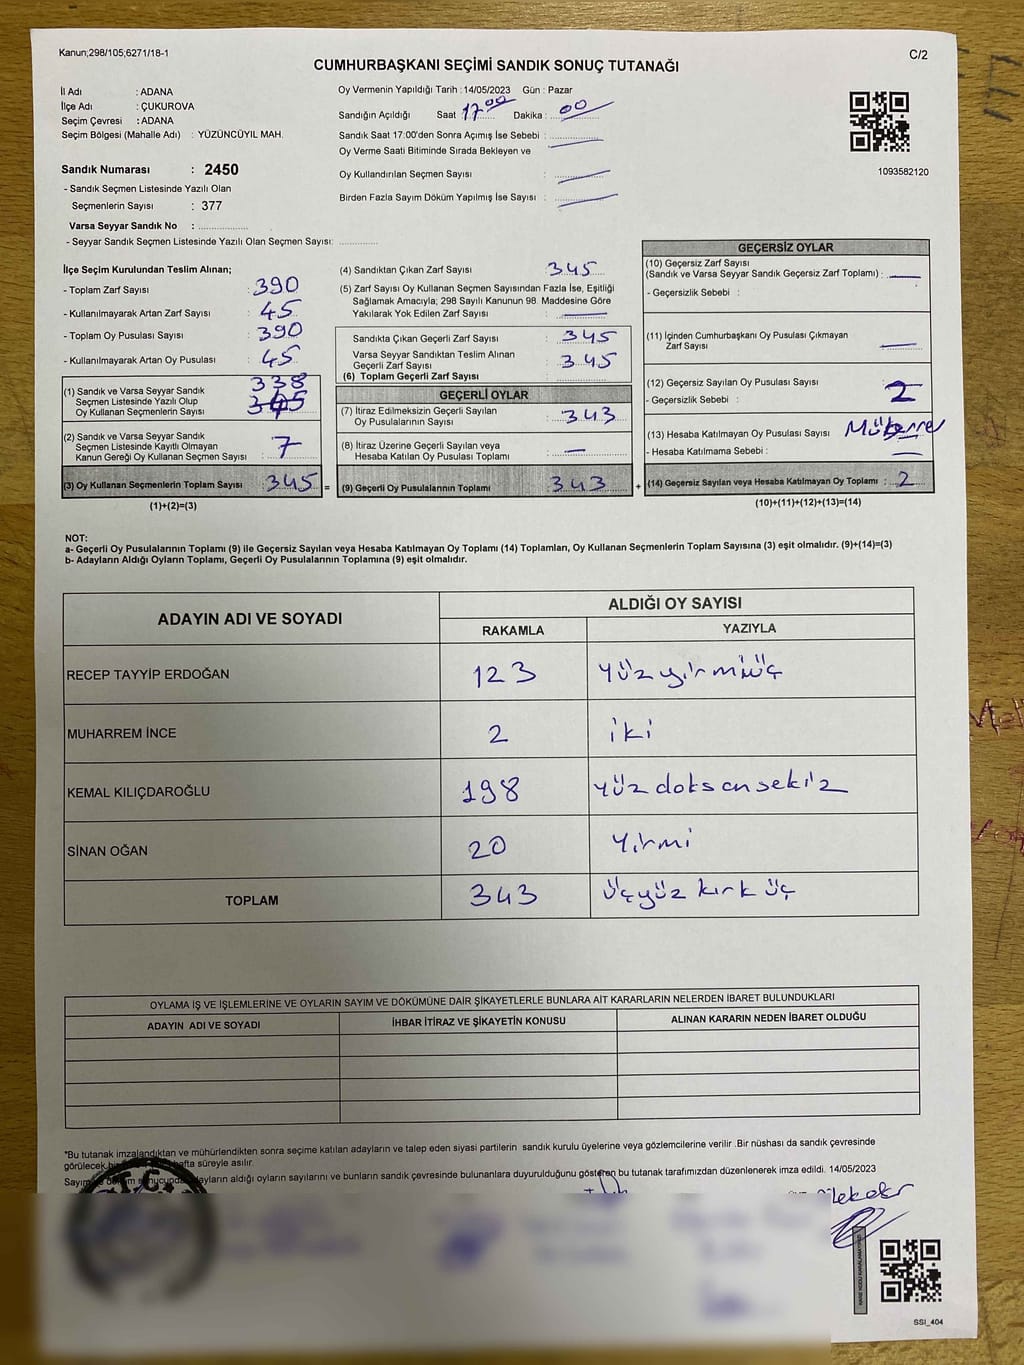 Kanun;298/105;6271/18-1
C/2
CUMHURBAŞKANI SEÇİMİ SANDIK SONUÇ TUTANAĞI
İl Adı : ADANA
İlçe Adı : ÇUKUROVA
Seçim Çevresi : ADANA
Seçim Bölgesi (Mahalle Adı) : YÜZÜNCÜYIL MAH.
Sandık Numarası : 2450
- Sandık Seçmen Listesinde Yazılı Olan
Seçmenlerin Sayısı : 377
Varsa Seyyar Sandık No : ...................
- Seyyar Sandık Seçmen Listesinde Yazılı Olan Seçmen Sayısı: ..............
Oy Vermenin Yapıldığı Tarih :14/05/2023 Gün : Pazar
Sandığın Açıldığı Saat 17:00 Dakika : 00
Sandık Saat 17:00'den Sonra Açımış İse Sebebi :
Oy Verme Saati Bitiminde Sırada Bekleyen ve
Oy Kullandırılan Seçmen Sayısı :
Birden Fazla Sayım Döküm Yapılmış İse Sayısı :
1093582120
İlçe Seçim Kurulundan Teslim Alınan;
- Toplam Zarf Sayısı : 390
- Kullanılmayarak Artan Zarf Sayısı : 45
- Toplam Oy Pusulası Sayısı : 390
- Kullanılmayarak Artan Oy Pusulası : 45
338
(1) Sandık ve Varsa Seyyar Sandık
Seçmen Listesinde Yazılı Olup : 345
Oy Kullanan Seçmenlerin Sayısı
(2) Sandık ve Varsa Seyyar Sandık
Seçmen Listesinde Kayıtlı Olmayan : 7
Kanun Gereği Oy Kullanan Seçmen Sayısı
(3) Oy Kullanan Seçmenlerin Toplam Sayısı : 345 =
(1)+(2)=(3)
(4) Sandıktan Çıkan Zarf Sayısı : 345
(5) Zarf Sayısı Oy Kullanan Seçmen Sayısından Fazla İse, Eşitliği
Sağlamak Amacıyla; 298 Sayılı Kanunun 98. Maddesine Göre
Yakılarak Yok Edilen Zarf Sayısı : —
Sandıkta Çıkan Geçerli Zarf Sayısı : 345
Varsa Seyyar Sandıktan Teslim Alınan
Geçerli Zarf Sayısı : 345
(6) Toplam Geçerli Zarf Sayısı :
GEÇERLİ OYLAR
(7) İtiraz Edilmeksizin Geçerli Sayılan
Oy Pusulalarının Sayısı : 343
(8) İtiraz Üzerine Geçerli Sayılan veya
Hesaba Katılan Oy Pusulası Toplamı : —
(9) Geçerli Oy Pusulalarının Toplamı : 343 +
GEÇERSİZ OYLAR
(10) Geçersiz Zarf Sayısı
(Sandık ve Varsa Seyyar Sandık Geçersiz Zarf Toplamı) : —
- Geçersizlik Sebebi :
(11) İçinden Cumhurbaşkanı Oy Pusulası Çıkmayan
Zarf Sayısı : —
(12) Geçersiz Sayılan Oy Pusulası Sayısı : 2
- Geçersizlik Sebebi :
(13) Hesaba Katılmayan Oy Pusulası Sayısı
- Hesaba Katılmama Sebebi : —
(14) Geçersiz Sayılan veya Hesaba Katılmayan Oy Toplamı : 2
(10)+(11)+(12)+(13)=(14)
NOT:
a- Geçerli Oy Pusulalarının Toplamı (9) ile Geçersiz Sayılan veya Hesaba Katılmayan Oy Toplamı (14) Toplamları, Oy Kullanan Seçmenlerin Toplam Sayısına (3) eşit olmalıdır. (9)+(14)=(3)
b- Adayların Aldığı Oyların Toplamı, Geçerli Oy Pusulalarının Toplamına (9) eşit olmalıdır.
ADAYIN ADI VE SOYADI
ALDIĞI OY SAYISI
RAKAMLA YAZIYLA
RECEP TAYYİP ERDOĞAN 123 yüz yirmi üç
MUHARREM İNCE 2 iki
KEMAL KILIÇDAROĞLU 198 yüz doksan sekiz
SİNAN OĞAN 20 yirmi
TOPLAM 343 üçyüz kırk üç
OYLAMA İŞ VE İŞLEMLERİNE VE OYLARIN SAYIM VE DÖKÜMÜNE DAİR ŞİKAYETLERLE BUNLARA AİT KARARLARIN NELERDEN İBARET BULUNDUKLARI
ADAYIN ADI VE SOYADI İHBAR İTİRAZ VE ŞİKAYETİN KONUSU ALINAN KARARIN NEDEN İBARET OLDUĞU
*Bu tutanak imzalandıktan ve mühürlendikten sonra seçime katılan adayların ve talep eden siyasi partilerin sandık kurulu üyelerine veya gözlemcilerine verilir .Bir nüshası da sandık çevresinde
görülecek bir hafta süreyle asılır.
Sayım sonucunda adayların aldığı oyların sayılarını ve bunların sandık çevresinde bulunanlara duyurulduğunu gösteren bu tutanak tarafımızdan düzenlenerek imza edildi. 14/05/2023
SSİ_404